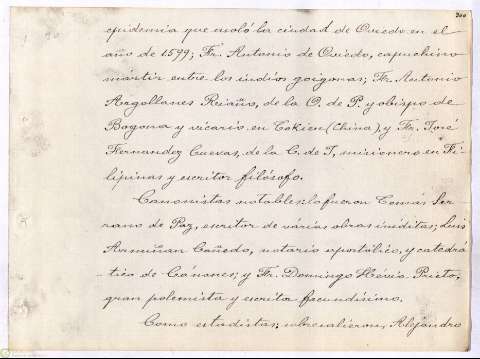 200
epidemia que asoló la ciudad de Oviedo en el
año de 1599; Fr. Antonio de Oviedo, capuchino
mártir entre los indios goigoros; Fr. Antonio
Argollanes Reiaño, de la O. de P. y obispo de
y vicario en Tokien (China), y Fr. José
Fernandez Cuevas, de la C. de J, misionero en Fi-
lipinas y escritor filósofo.
Canonistas notables: lo fueron Tomás Ser
rano de Paz, escritor de várias obras inéditas; Luis
Armiñan Cañedo, notario apostólico, y catedrá
-tico de Cánones; y Fr. Domingo Prieto,
gran polemista y escritor fecundísimo.
Como estadistas, sobresalieron, Alejandro